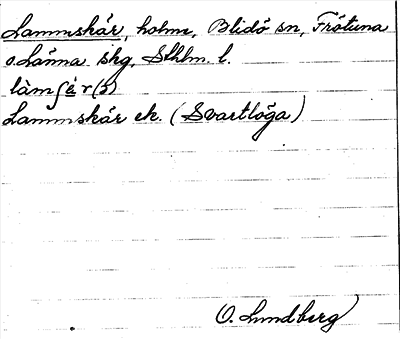 Lammskär, holme, Blidö sn, Frötuna
o. Länna skg, Sthlm. l.
làmʃä́r(ə)
Lammskär ek. (Svartlöga)
O. Lundberg